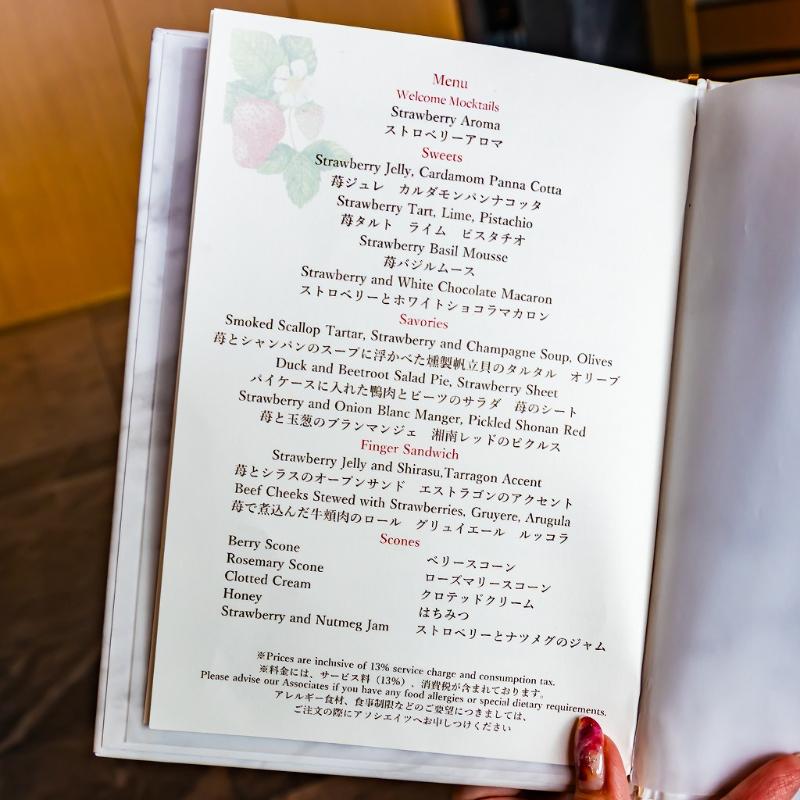 Menu
Welcome Mocktails
Strawberry Aroma
ストロベリーアロマ
Sweets
Strawberry Jelly, Cardamom Panna Cotta
苺ジュレ　カルダモンパンナコッタ
Strawberry Tart, Lime, Pistachio
苺タルト　ライム　ピスタチオ
Strawberry Basil Mousse
苺バジルムース
Strawberry and White Chocolate Macaron
ストロベリーとホワイトショコラマカロン
Savories
Smoked Scallop Tartar, Strawberry and Champagne Soup. Olives
苺とシャンパンのスープに浮かべた燻製帆立貝のタルタル　オリーブ
Duck and Beetroot Salad Pie, Strawberry Sheet
パイケースに入れた鴨肉とビーツのサラダ　苺のシート
Strawberry and Onion Blanc Manger, Pickled Shonan Red
苺と玉葱のブランマンジェ　湘南レッドのピクルス
Finger Sandwich
Strawberry Jelly and Shirasu,Tarragon Accent
苺とシラスのオープンサンド　エストラゴンのアクセント
Beef Cheeks Stewed with Strawberries, Gruyere, Arugula
苺で煮込んだ牛頬肉のロール　グリュイエール　ルッコラ
Scones
Berry Scone　ベリースコーン
Rosemary Scone　ローズマリースコーン
Clotted Cream　クロテッドクリーム
Honey　はちみつ
Strawberry and Nutmeg Jam　ストロベリーとナツメグのジャム
※Prices are inclusive of 13% service charge and consumption tax.
※料金には、サービス料（13%）、消費税が含まれております。
Please advise our Associates if you have any food allergies or special dietary requirements.
アレルギー食材、食事制限などのご要望につきましては、
ご注文の際にアソシエイツへお申しつけください